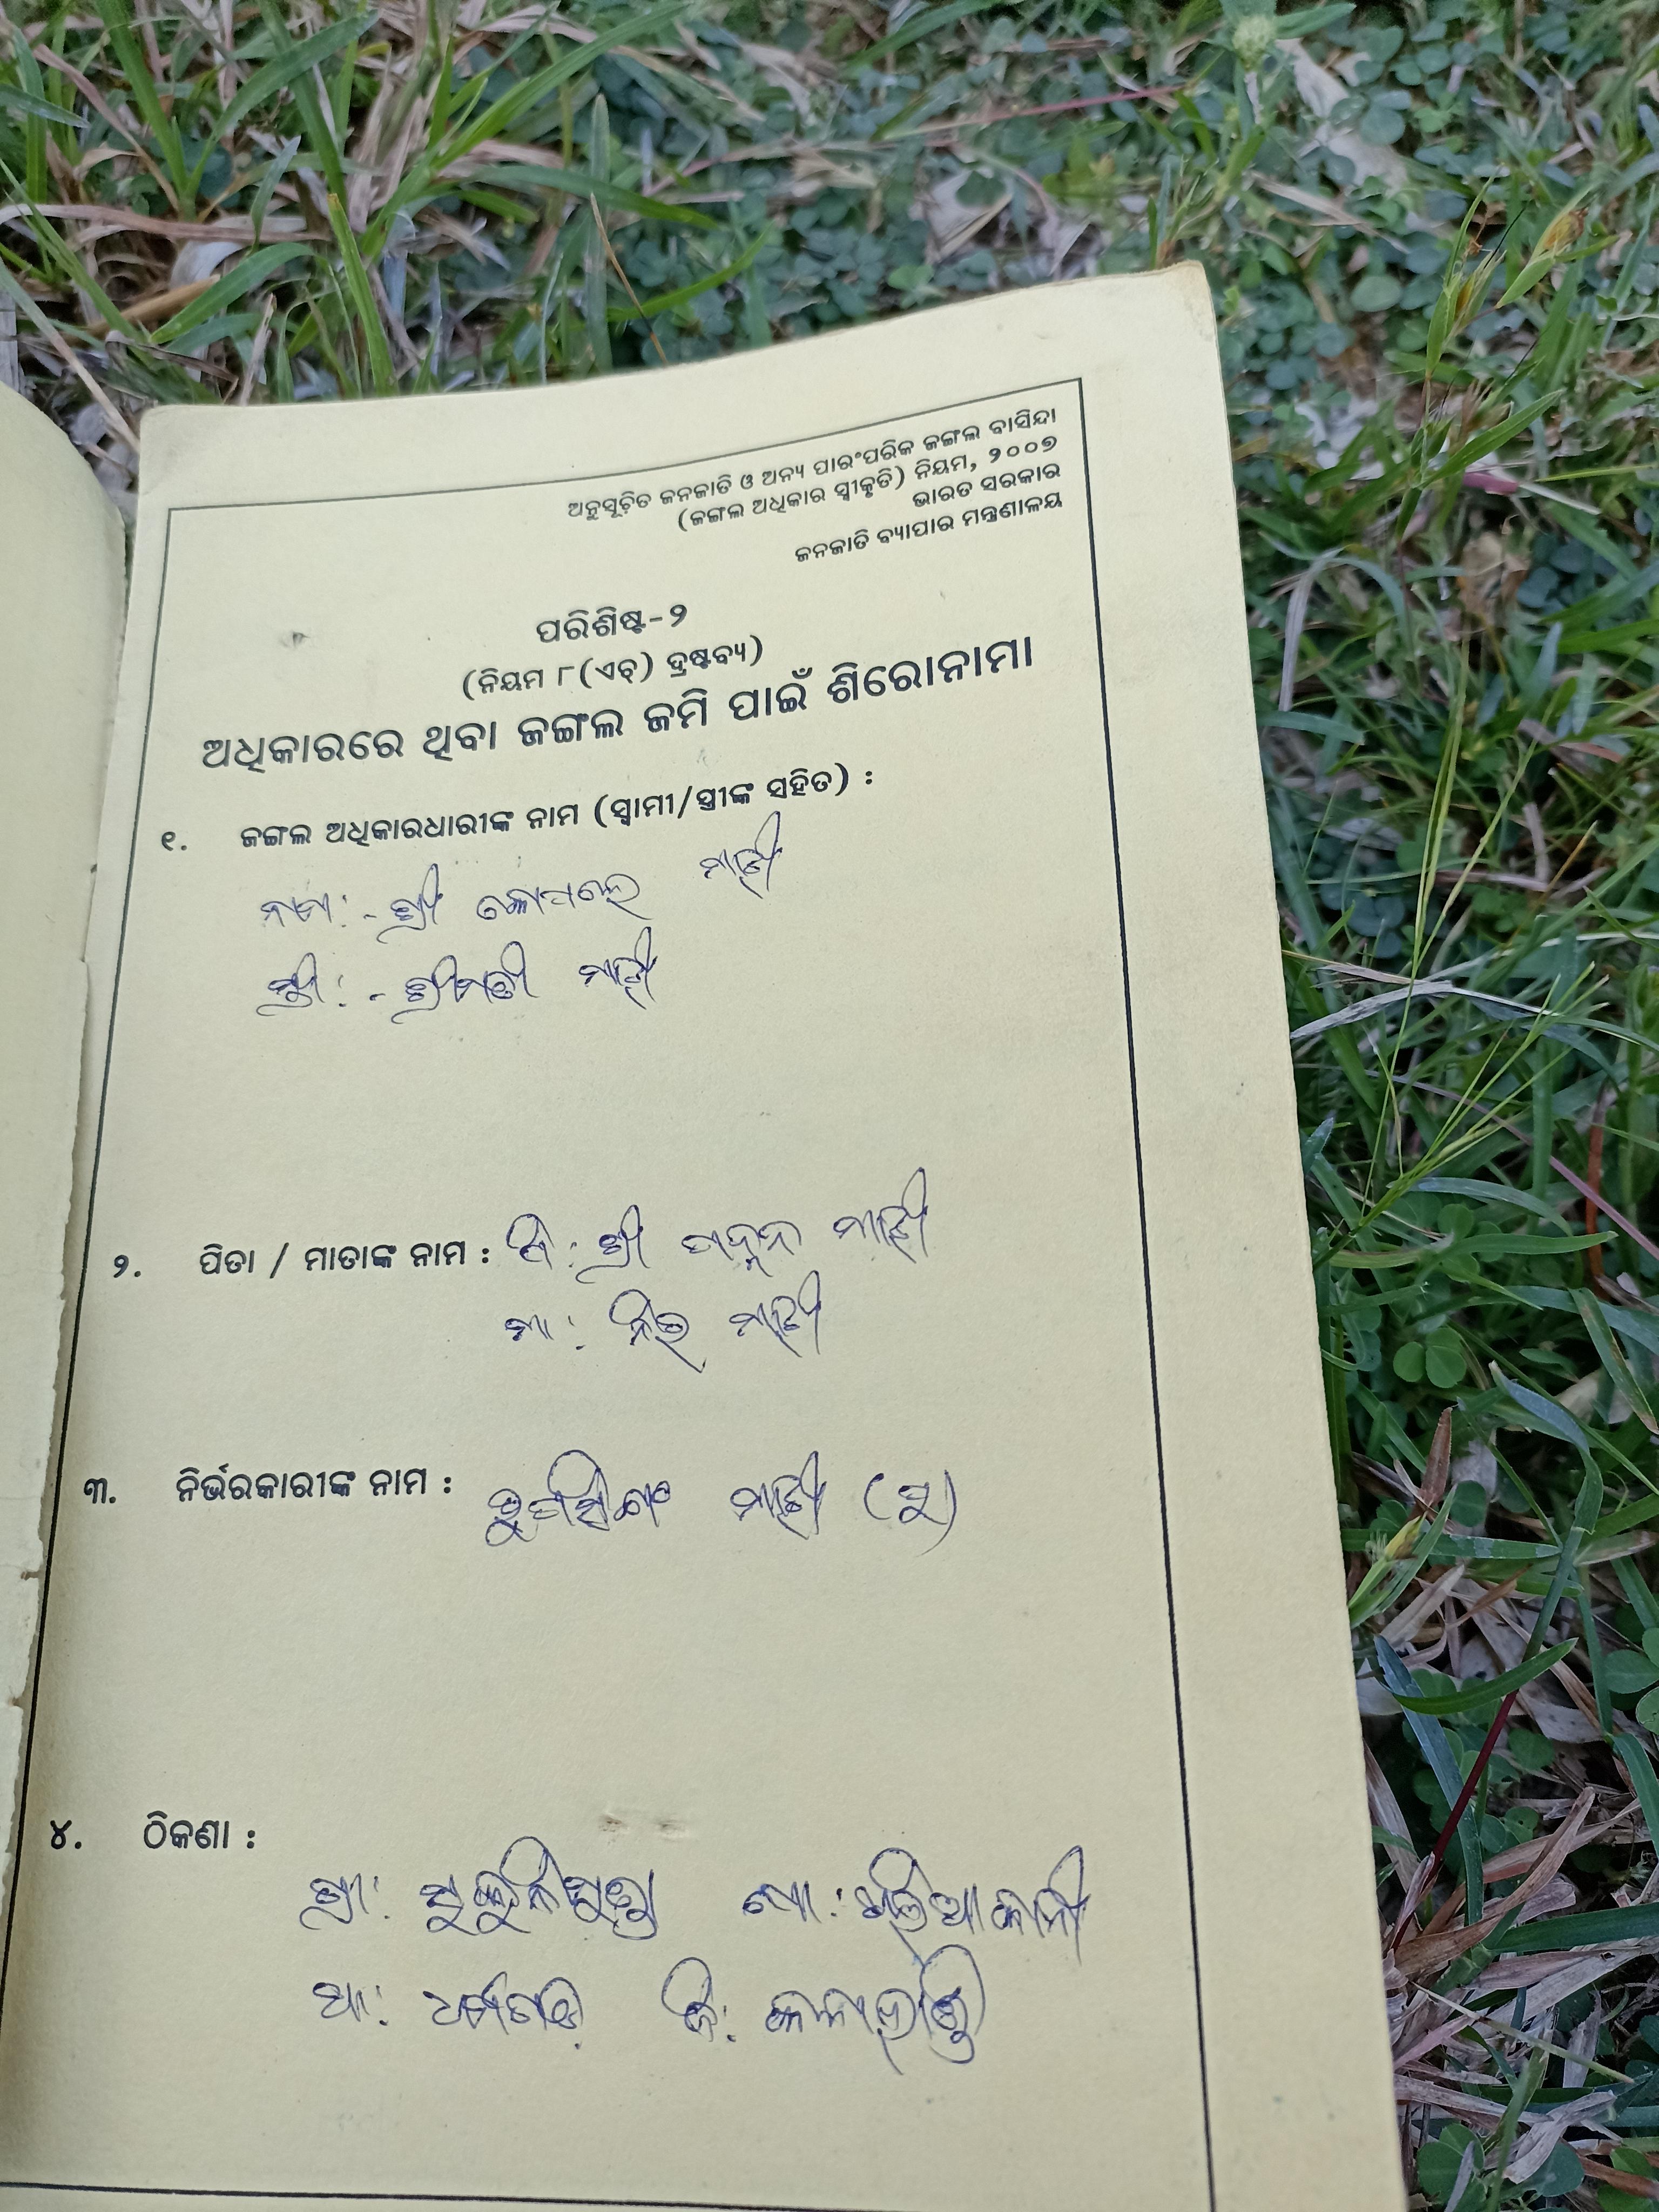 ଅନୁସୂଚିତ ଜନଜାତି ଓ ଅନ୍ୟ ପାରଂପରିକ ଜଙ୍ଗଲ ବାସିନ୍ଦା
(ଜଙ୍ଗଲ ଅଧିକାର ସ୍ୱୀକୃତି) ନିୟମ, ୨୦୦୭
ଭାରତ ସରକାର
ଜନଜାତି ବ୍ୟାପାର ମନ୍ତ୍ରଣାଳୟ
ପରିଶିଷ୍ଟ-୨
(ନିୟମ ୮(ଏଚ୍) ଦ୍ରଷ୍ଟବ୍ୟ)
ଅଧିକାରରେ ଥିବା ଜଙ୍ଗଲ ଜମି ପାଇଁ ଶିରୋନାମା
୧. ଜଙ୍ଗଲ ଅଧିକାରଧାରୀଙ୍କ ନାମ (ସ୍ୱାମୀ/ସ୍ତ୍ରୀଙ୍କ ସହିତ) :
ନାମ:- ଶ୍ରୀ ମାଝୀ
ସ୍ତ୍ରୀ:- ଶ୍ରୀମତୀ ମାଝୀ
୨. ପିତା / ମାତାଙ୍କ ନାମ : ପି: ଶ୍ରୀ ମାଝୀ
ମା: ମାଝୀ
୩. ନିର୍ଭରକାରୀଙ୍କ ନାମ : ମାଝୀ (ପୁ)
୪. ଠିକଣା :
ଗ୍ରା: ପୋ:
ଥା: ଧର୍ମଗଡ଼ ଜି: କଳାହାଣ୍ଡି